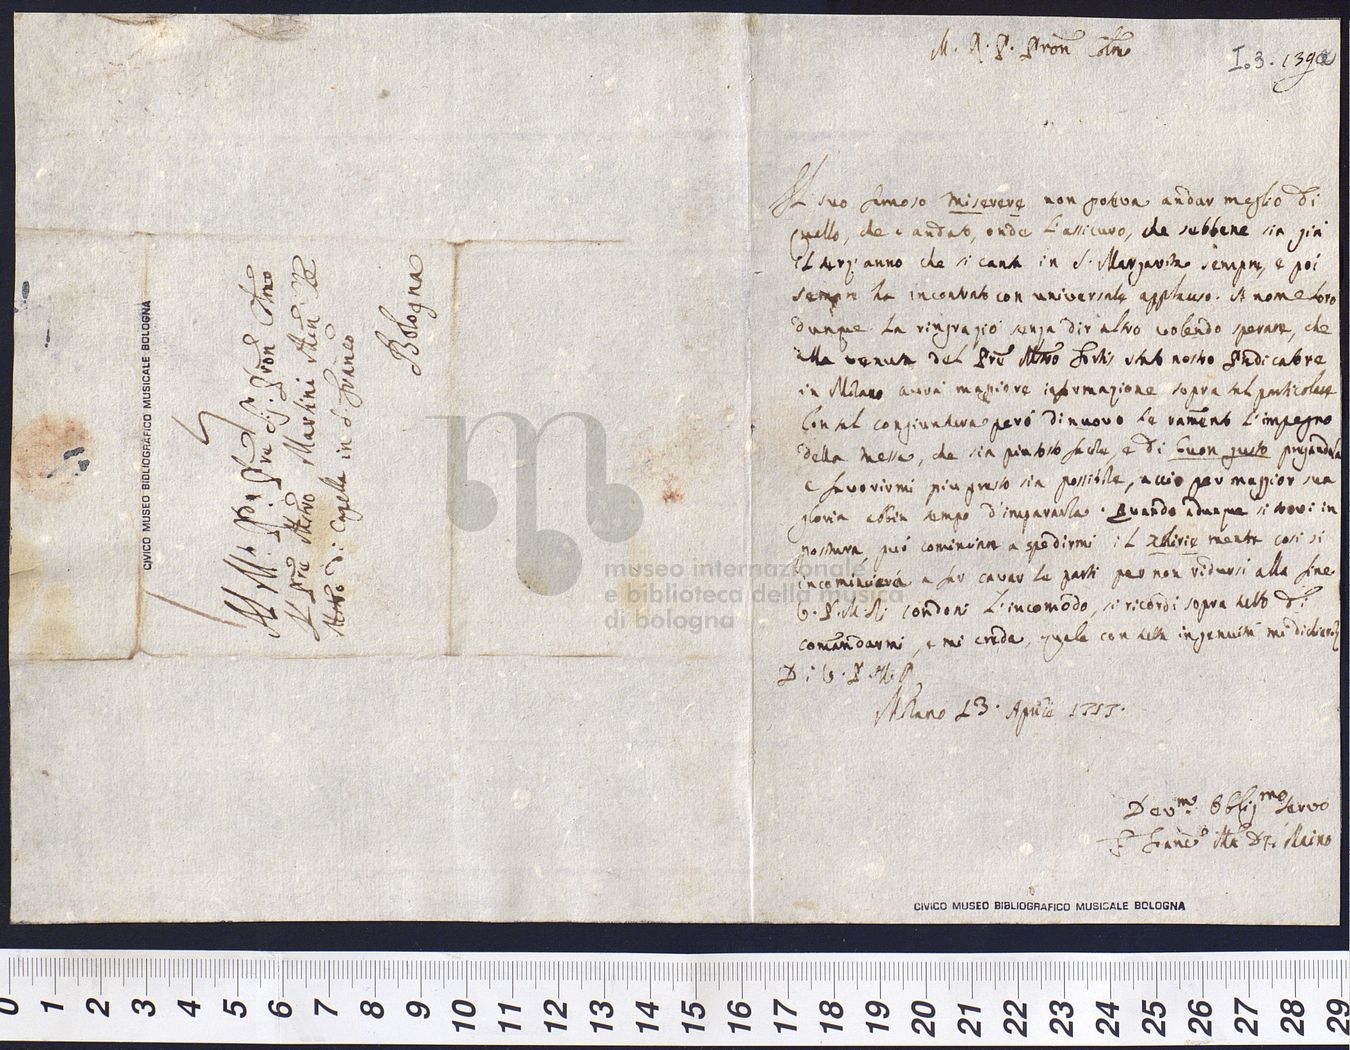 M. R. P. Pron Colmo
I.3.139a
Il suo famoso Miserere non poteva andar meglio di
quello, che è andato, onde l'assicuro, che sebbene sia già
il terz'anno che si canta in S. Margarita sempre, e poi
sempre ha incontrato con universale applauso. A nome loro
dunque la ringrazio senza dir altro volendo sperare, che
alla venuta del Pre Mtro stato nostro Predicatore
in Milano avrà maggiore informazione sopra tal particolare
Con tal congiuntura però di nuovo le ramento l'impegno
della Messa, che sia piutosto facile, e di buon gusto pregandola
e favorirmi più presto sia possibile, acciò per maggior sua
gloria abbia tempo d'impararla. Quando adunque si trovi in
postura, può cominciare a spedirmi il Khirie mentre così si
incomincierà a far cavar le parti per non ridursi alla fine
V. P. M. R. condoni l'incomodo, si ricordi sopra tutto di
comandarmi, e mi creda, quale con tutta ingenuità mi dichiaro
Di V. P. M. R.
Milano 13. Aprile
Devmo Obligmo Servo
F. Franco Ma De Maino
CIVICO MUSEO BIBLIOGRAFICO MUSICALE BOLOGNA
Al M. R. P. Pre Sig. Pron Colmo
Il Pre Mtro Martini
Mtro di Capella in S. Franco
Bologna
CIVICO MUSEO BIBLIOGRAFICO MUSICALE BOLOGNA
museo internazionale
e biblioteca della musica
di bologna
0 1 2 3 4 5 6 7 8 9 10 11 12 13 14 15 16 17 18 19 20 21 22 23 24 25 26 27 28 29